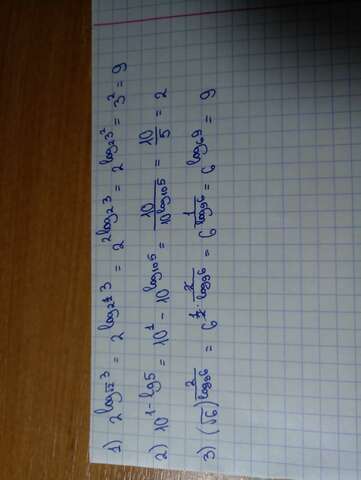 1) 2^{log_{√2} 3} = 2^{log_{2^{1/2}} 3} = 2^{2log_2 3} = 2^{log_2 3^2} = 3^2 = 9
2) 10^{1-lg5} = 10^1 - 10^{log_{10} 5} = \frac{10}{10^{log_{10} 5}} = \frac{10}{5} = 2
3) (√6)^{\frac{2}{log_9 6}} = 6^{\frac{1}{2} · \frac{2}{log_9 6}} = 6^{\frac{1}{log_9 6}} = 6^{log_6 9} = 9